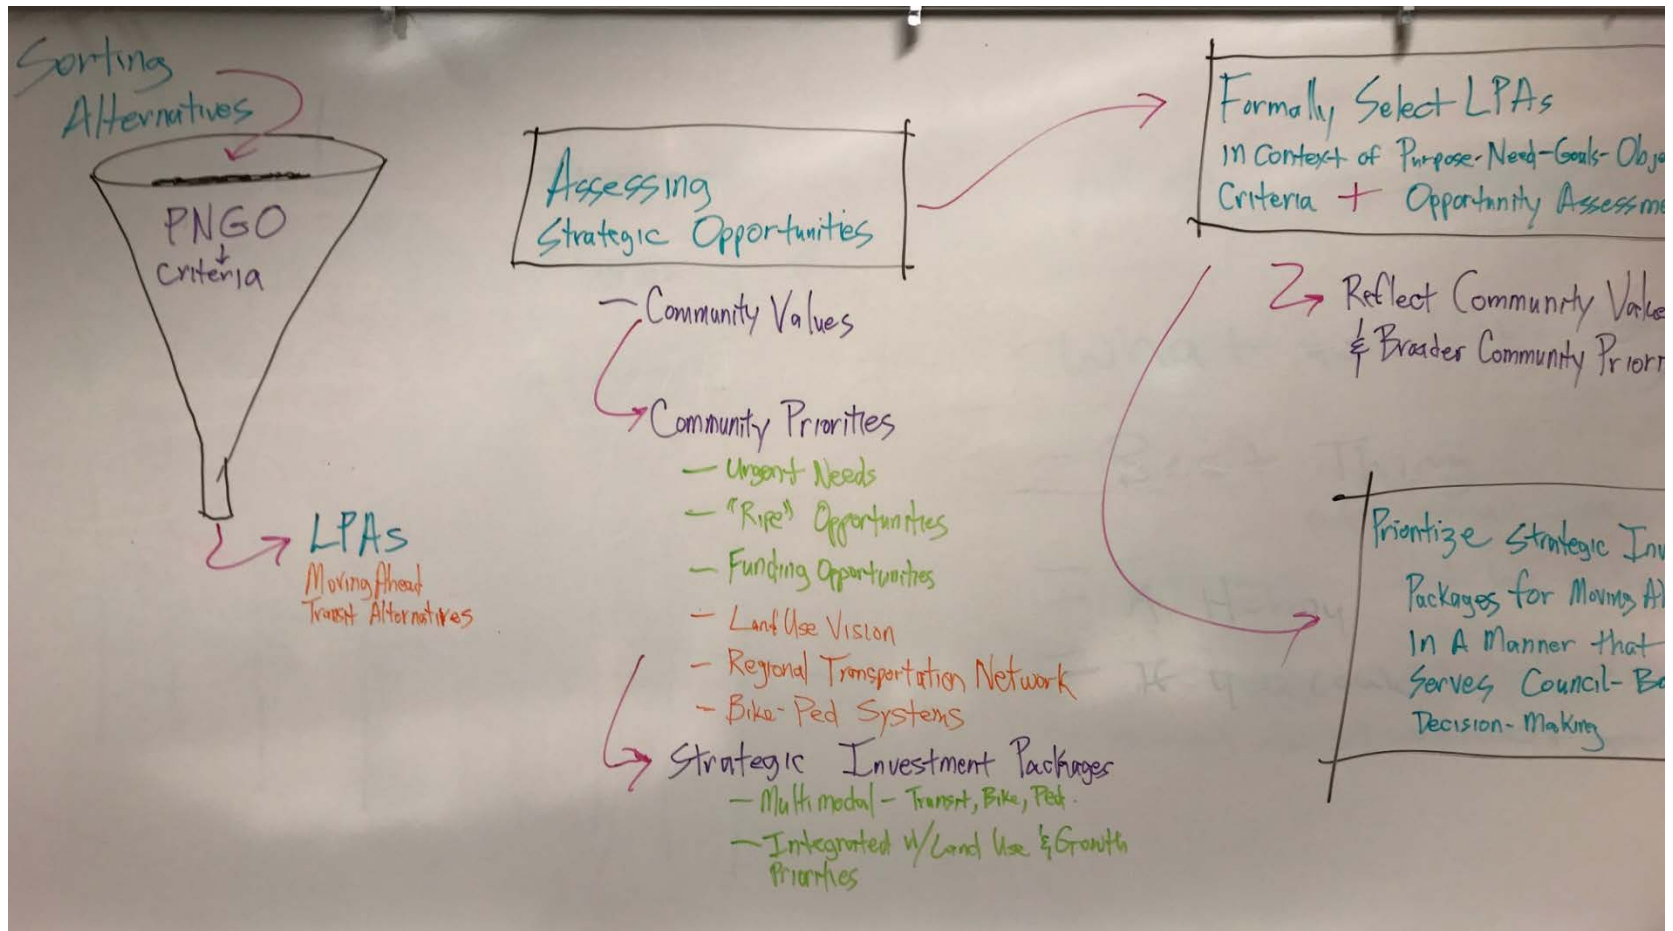 Sorting
Alternatives
PNGO
Criteria
LPAs
Moving Ahead
Transit Alternatives
Assessing
Strategic Opportunities
— Community Values
Community Priorities
— Urgent Needs
— "Ripe" Opportunities
— Funding Opportunities
— Land Use Vision
— Regional Transportation Network
— Bike-Ped Systems
Strategic Investment Packages
— Multimodal — Transit, Bike, Ped.
— Integrated w/Land Use & Growth
Priorities
Formally Select LPAs
in Context of Purpose-Need-Goals-Obje
Criteria + Opportunity Assessme
Reflect Community Value
& Broader Community Priori
Prioritize Strategic Inv
Packages for Moving A
In A Manner that
Serves Council-Bo
Decision-Making